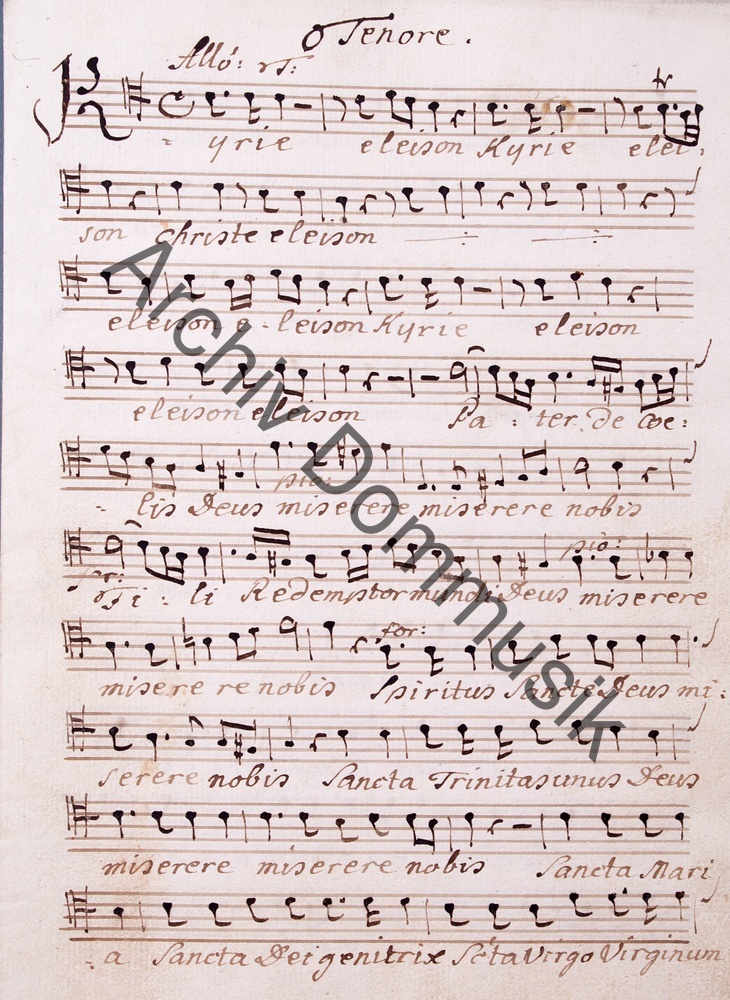 Tenore.
Allo: 
Kyrie eleison Kyrie elei-
son christe eleison
eleison e-leison Kyrie eleison
eleison eleison Pa-ter de coe:
lis Deus miserere miserere nobis
pio:
Fi:li Redemptor mundi Deus miserere
pio:
miserere nobis Spiritus Sancte Deus mi:
for:
serere nobis Sancta Trinitas unus Deus
miserere miserere nobis Sancta Mari
-a Sancta Dei genitrix Scta Virgo Virginum
Archiv Dommusik